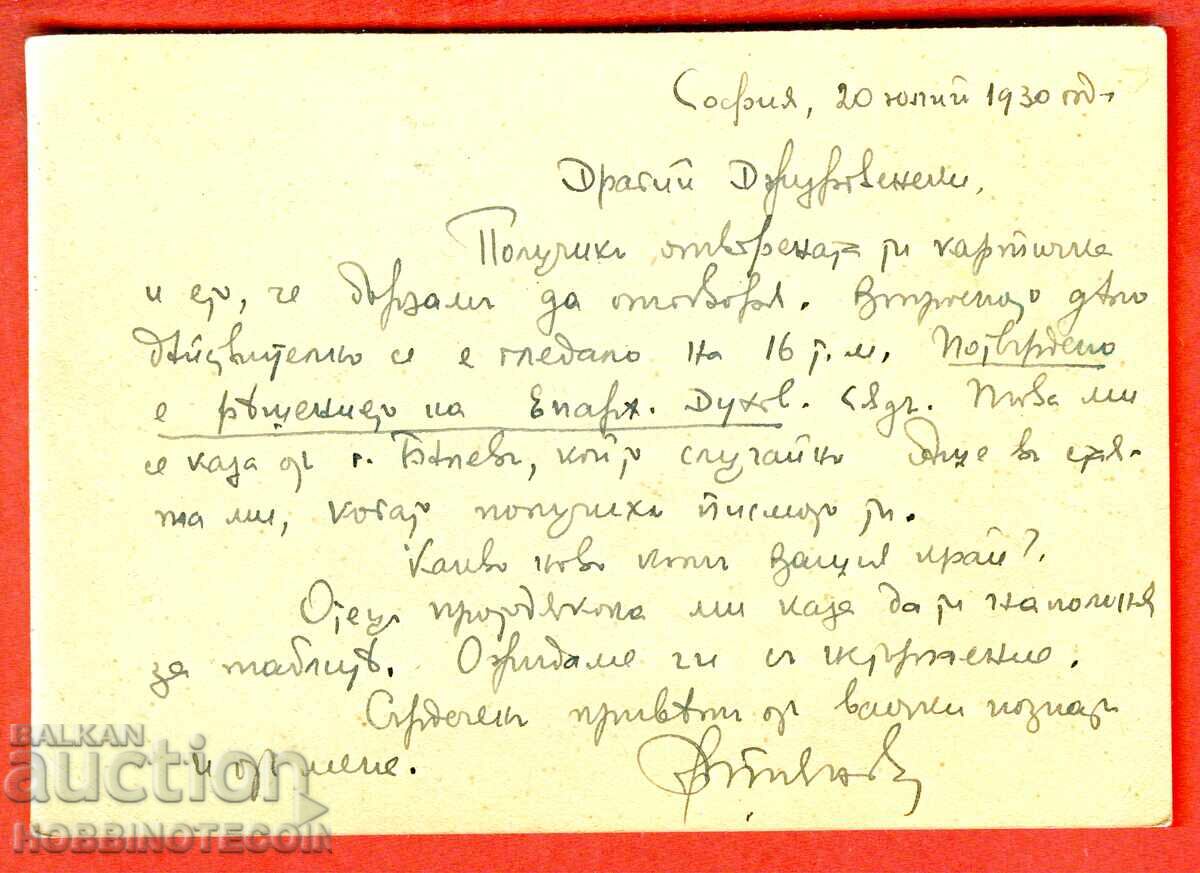 София, 20 юлий 1930 год.
Драгий
Получихъ отворената ти картичка
и ето, че бързамъ да отговоря. дѣло
дѣйствително се е гледало на 16 т. м. Потвърдено
е рѣшението на Епарх. Духов. Съдъ. Това ми
се каза отъ г. който случайно бѣше въ стая-
та ми, когато получихъ писмото ти.
Какво ново къмъ Вашия край?
Отецъ протодякона ми каза да ти напомня
за таблицѣ. Ожидаме ги съ
Сърдеченъ привѣтъ отъ всички познати
и отъ мене.
BALKAN
auction
HOBBINOTECOIN